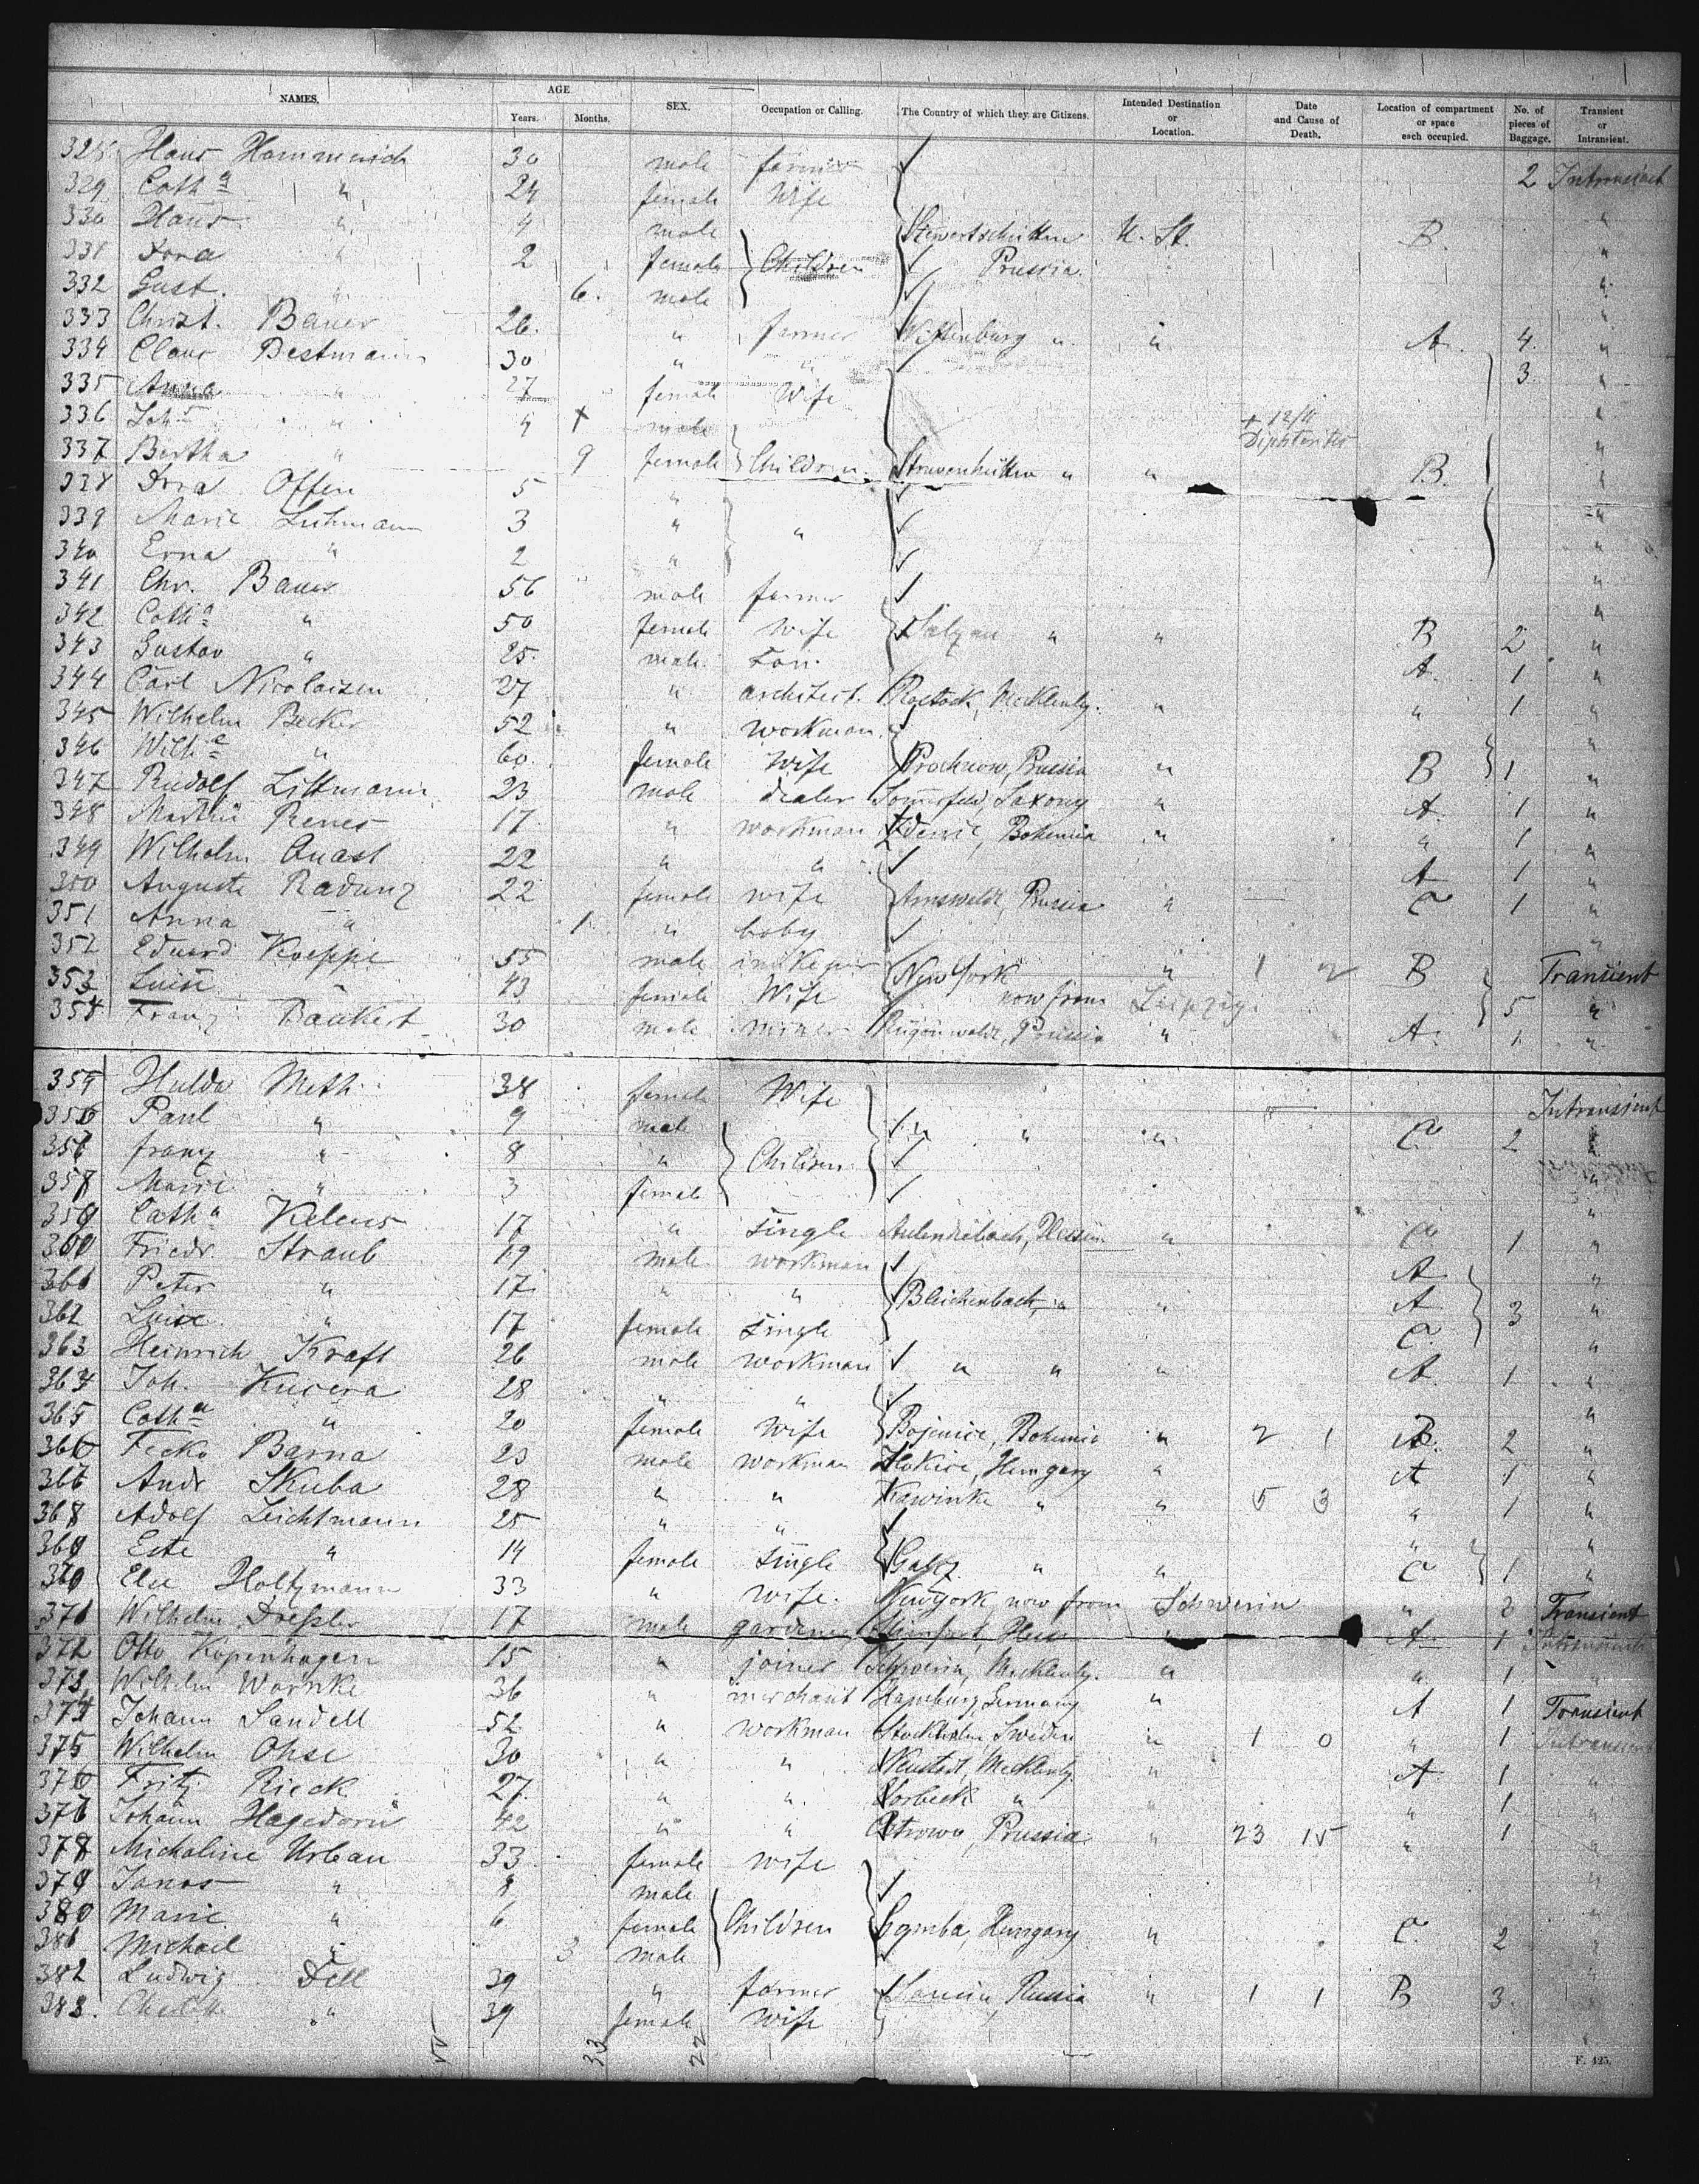 NAMES. AGE Years. Months. SEX. Occupation or Calling. The Country of which they are Citizens. Intended Destination or Location. Date and Cause of Death. Location of compartment or space each occupied. No. of pieces of Baggage. Transient or Intransient.
328 Hans Hammerich 30 male farmer 2 Intransient
329 Cath a " 24 female Wife "
330 Hans " 4 male U. St. B. "
331 Dora " 2 female Children Prussia "
332 Gust. " 6. male "
333 Christ. Bauer 26. " farmer " " A. 4. "
334 Claus Bestmann 30 " " 3 "
335 Anna " 27 female Wife "
336 Joh " 4 + male + 12/4 Diphteritis "
337 Bertha " 9 female Children Struvenhütten " " B. "
338 Dora Offen 5 " "
339 Marie Luhmann 3 " " "
340 Erna " 2 " "
341 Chr. Bauer 56 male farmer "
342 Cath a " 50 female Wife " " B 2 "
343 Gustav " 25. male. Son. A. 1 "
344 Carl Nicolaisen 27 " architect. Rostock, Mecklenbg. " " 1 "
345 Wilhelm Becker 52 " workman "
346 Wilh e " 60. female Wife Prochnow, Prussia " B 1 "
347 Rudolf Littmann 23 male dealer Sommerfeld, Saxony " A. 1 "
348 17 " workman Zdenic, Bohemia " " 1 "
349 Wilhelm Quast 22 " " A 1 "
350 Auguste Radunz 22 female wife Arnswalde, Prussia " C 1 "
351 Anna " 1. " baby "
352 Eduard Koeppe 55 male New York " 1 2 B Transient
353 Luise " 43 female Wife now from Leipzig 5 "
354 Franz 30 male miner Rügenwalde, Prussia " A. 1. "
355 Hulda Meth 34 female Wife Intransient
356 Paul " 9 male " " " C 2 "
357 Franz " 8 " Children "
358 Marie " 3 female "
359 Cath a 17 " Single Hessen " C 1 "
360 Friedr. Straub 19 male workman A "
361 Peter " 17 " " Bleichenbach, " " A 3 "
362 Luise " 17 female Single C. "
363 Heinrich Kraft 26 male workman " " " A. 1 "
364 Joh. Kucera 28 " " "
365 Cath a " 20 female Wife Bohemia " 2 1 B. 2 "
366 Fecko Barna 23 male workman Hungary " A 1 "
367 Andr Skuba 28 " " " " 5 3 " 1 "
368 Adolf Leichtmann 25 " " " "
369 Este " 14 female Single " " C 1 "
370 Else Holtzmann 33 " wife. New York now from Schwerin " 2 Transient
371 Wilhelm Dressler 17 male gardener Hess " A. 1 Intransient
372 Otto Kopenhagen 15 " joiner Schwerin, Mecklenbg. " " 1
373 Wilhelm Warnke 36 " merchant Hamburg, Germany " A 1 Transient
374 Johann Sandell 52 " workman Stockholm, Sweden " 1 0 " 1 Intransient
375 Wilhelm Ohse 30 " " Neustadt, Mecklenbg. " A 1 "
376 Fritz Rieck 27. " " " " " 1 "
377 Johann Hagedorn 42 " " Ostrowo, Prussia " 23 15 " 1 "
378 Michaline Urban 33 female wife "
379 Janos " 8 male "
380 Marie " 6 female Children Hungary " C. 2 "
381 Michael " 3 male "
382 Ludwig Dell 39 " farmer Russia " 1 1 B 3.
383. " 39 female Wife
55 33 22
F. 425.